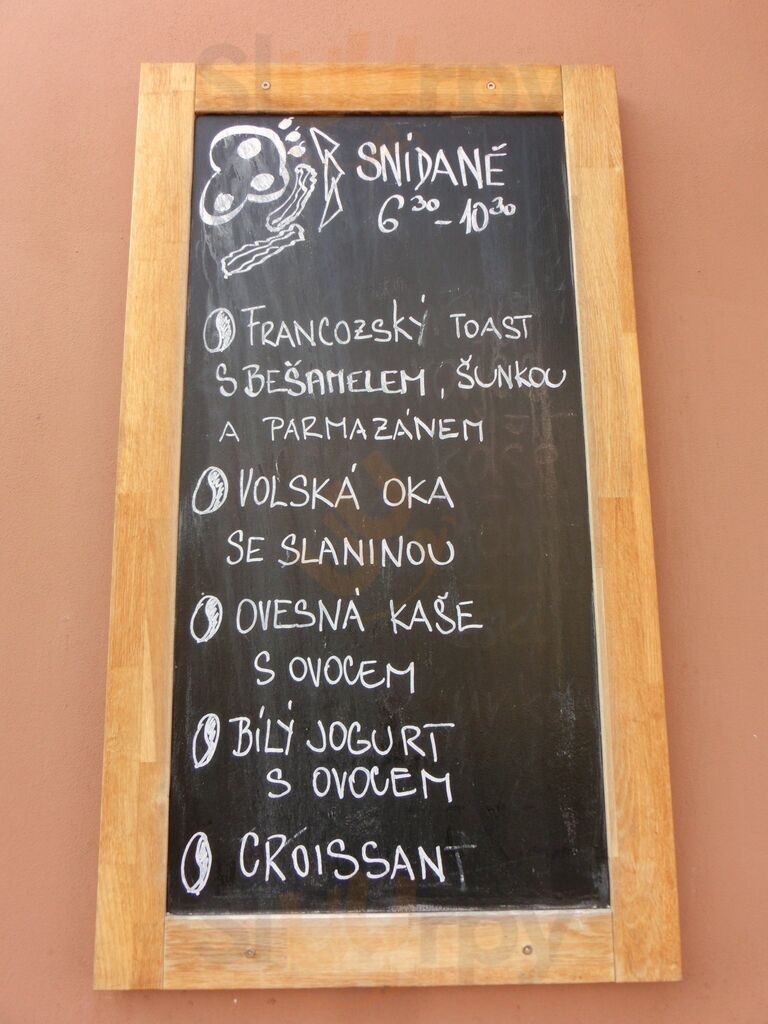 SNÍDANĚ
6³⁰ - 10³⁰
FRANCOZSKÝ TOAST
S BEŠAMELEM, ŠUNKOU
A PARMAZÁNEM
VOLSKÁ OKA
SE SLANINOU
OVESNÁ KAŠE
S OVOCEM
BÍLÝ JOGURT
S OVOCEM
CROISSANT